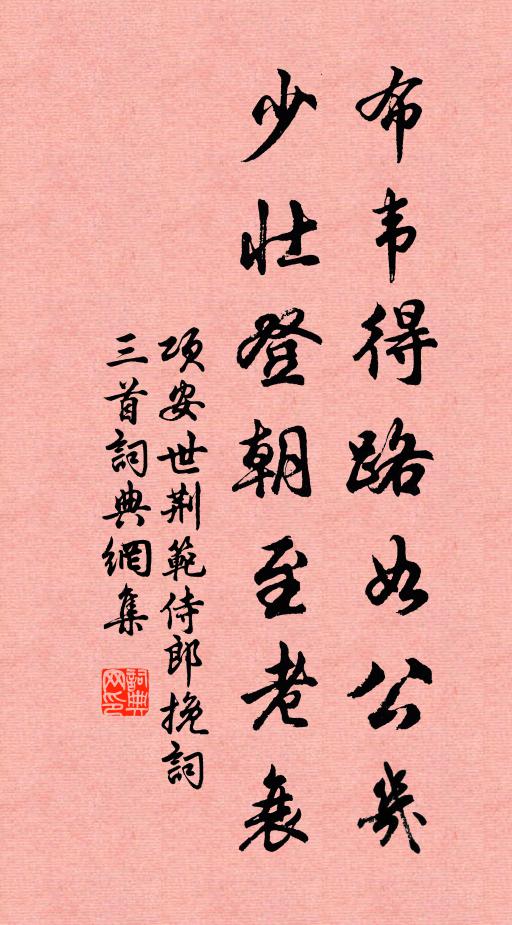 布韦得路如公几
少壮登朝至老衰
项安世荆範侍郎挽詞
三首詞典網集
詞典网印